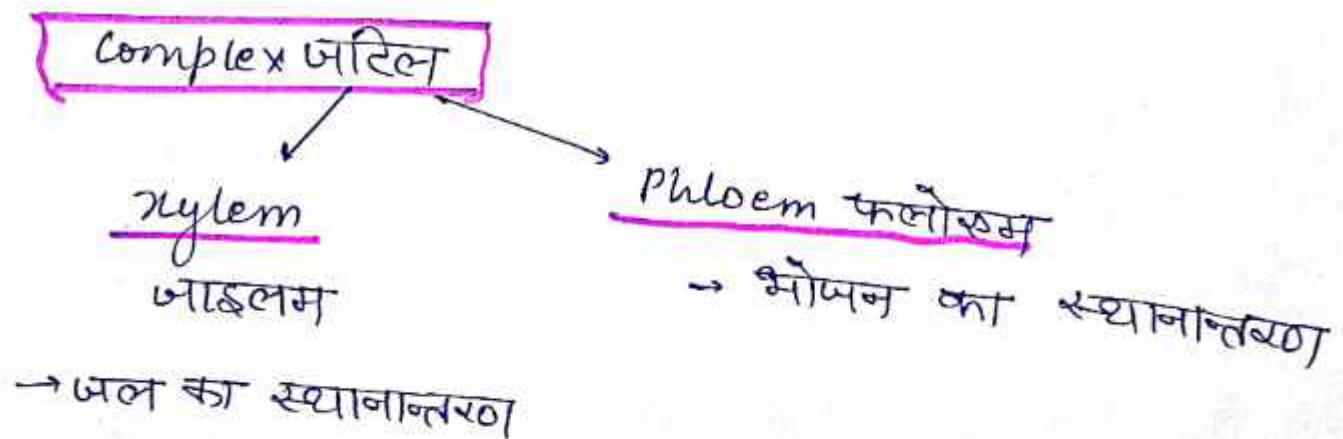 Complex जटिल
xylem
जाइलम
→ जल का स्थानान्तरण
Phloem फ्लोएम
→ भोजन का स्थानान्तरण